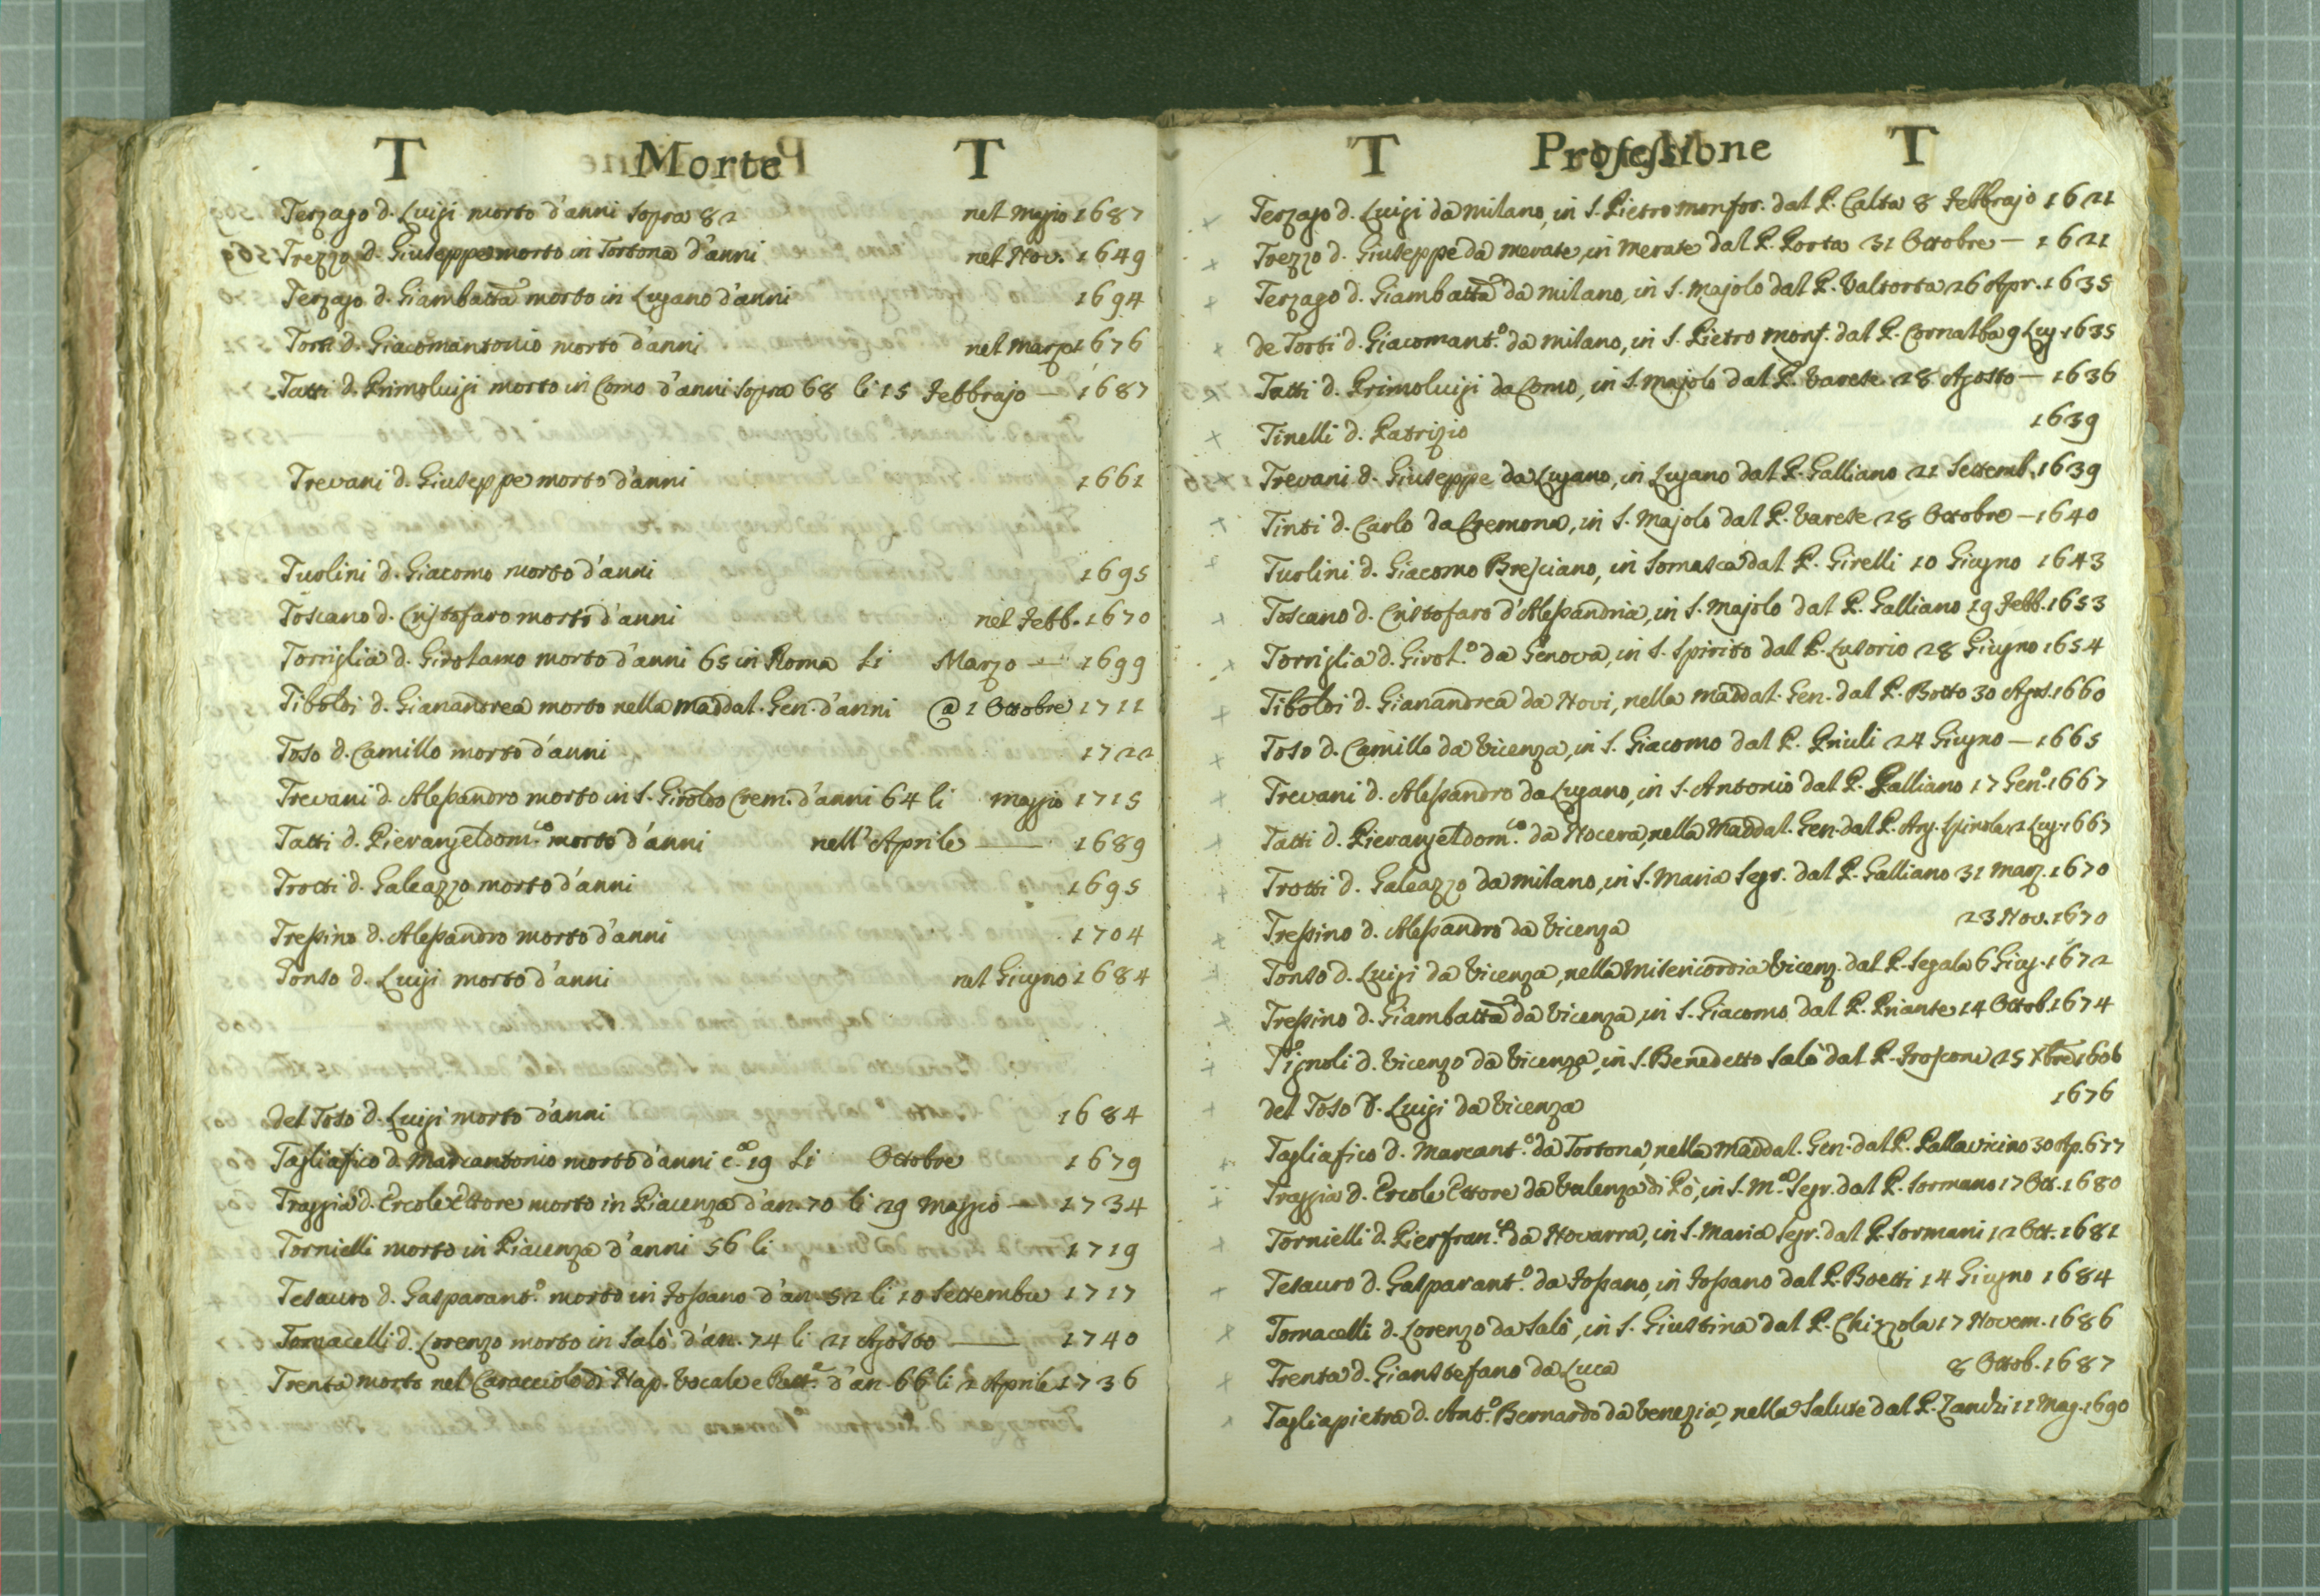 T Morte T
Terzago d. Luigi morto d'anni sopra 82 nel Magio 1687
Trezzo d. Giuseppe morto in Tortona d'anni nel Nov. 1649
Terzago d. Giambatta morto in Lugano d'anni 1694
Torti d. Giacomantonio morto d'anni nel Marzo 1676
Tatti d. Primoluigi morto in Como d'anni sopra 68 li 15 Febbrajo — 1687
Trevani d. Giuseppe morto d'anni 1661
Tuolini d. Giacomo morto d'anni 1695
Toscano d. Cristofaro morto d'anni nel Febb. 1670
Torriglia d. Girolamo morto d'anni 65 in Roma li Marzo — 1699
Tiboldi d. Gianandrea morto nella Maddal. Gen. d'anni @ 1 Ottobre 1711
Toso d. Camillo morto d'anni 1722
Trevani d. Alessandro morto in S. Giroldo Crem. d'anni 64 li Maggio 1715
Tatti d. Pierangeldom.co morto d'anni nell'Aprile — 1689
Trotti d. Galeazzo morto d'anni 1695
Tressino d. Alessandro morto d'anni 1704
Tonso d. Luigi morto d'anni nel Giugno 1684
del Toso d. Luigi morto d'anni 1684
Tagliafico d. Marcantonio morto d'anni c.ca 19 li Ottobre 1679
Traggia d. Ercole Ettore morto in Piacenza d'an. 70 li 29 Maggio — 1734
Tornielli morto in Piacenza d'anni 56 li 1719
Tesauro d. Gasparant.o morto in Fossano d'an. 52 li 10 Settembre 1717
Tomacelli d. Lorenzo morto in Salò d'an. 74 li 21 Agosto — 1740
Trenta morto nel Caracciolo di Nap. Vocale e d'an. 66 li 2 Aprile 1736
T Professione T
Terzago d. Luigi da Milano, in S. Pietro Monfor. dal P. Calta 8 Febbrajo 1621
Trezzo d. Giuseppe da Merate, in Merate dal P. Porta 31 Ottobre — 1621
Terzago d. Giambatta da Milano, in S. Majolo dal P. Valtorta 26 Apr. 1635
de Torti d. Giacomant.o da Milano, in S. Pietro Monf. dal P. Cornalba 9 Lug. 1635
Tatti d. Primoluigi da Como, in S. Majolo dal P. Varese 28 Agosto — 1636
Tinelli d. Patrizio 1639
Trevani d. Giuseppe da Lugano, in Lugano dal P. Galliano 21 Settemb. 1639
Tinti d. Carlo da Cremona, in S. Majolo dal P. Varese 28 Ottobre — 1640
Tuolini d. Giacomo Bresciano, in Somasca dal P. Girelli 10 Giugno 1643
Toscano d. Cristofaro d'Alessandria, in S. Majolo dal P. Galliano 19 Febb. 1653
Torriglia d. Girol.o da Genova, in S. Spirito dal P. Lusorio 28 Giugno 1654
Tiboldi d. Gianandrea da Novi, nella Maddal. Gen. dal P. Botto 30 Agos. 1660
Toso d. Camillo da Vicenza, in S. Giacomo dal P. Priuli 24 Giugno — 1665
Trevani d. Alessandro da Lugano, in S. Antonio dal P. Galliano 17 Gen.o 1667
Tatti d. Pierangeldom.co da Nocera, nella Maddal. Gen. dal P. Ang. Spinola 2 Lug. 1667
Trotti d. Galeazzo da Milano, in S. Maria Segr. dal P. Galliano 31 Marz. 1670
Tressino d. Alessandro da Vicenza 23 Nov. 1670
Tonso d. Luigi da Vicenza, nella Misericordia Vicenz. dal P. Segala 6 Giug. 1672
Tressino d. Giambatta da Vicenza, in S. Giacomo dal P. Priante 14 Ottob. 1674
Tignoli d. Vicenzo da Vicenza, in S. Benedetto Salò dal P. Frosconi 25 Xbre 1606
del Toso d. Luigi da Vicenza 1676
Tagliafico d. Marcant.o da Tortona, nella Maddal. Gen. dal P. Pallavicino 30 Ap. 677
Traggia d. Ercole Ettore da Valenza di Pò, in S. M.a Segr. dal P. Sormano 17 Ott. 1680
Tornielli d. Pierfran.co da Novarra, in S. Maria Segr. dal P. Sormani 12 Ott. 1681
Tesauro d. Gasparant.o da Fossano, in Fossano dal P. Boetti 14 Giugno 1684
Tomacelli d. Lorenzo da Salò, in S. Giustina dal P. Chizzola 17 Novem. 1686
Trenta d. Gianstefano da Luca 8 Ottob. 1687
Tagliapietra d. Ant.o Bernardo da Venezia, nella Salute dal P. Zanchi 11 Mag. 1690